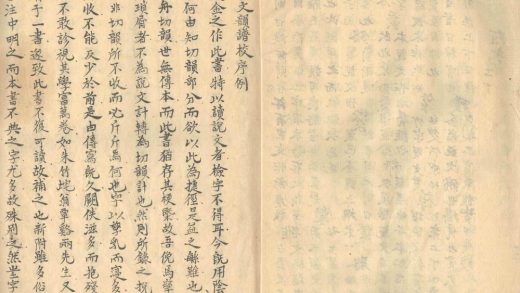 文韻譜校序例
金之作此書特以讀說文者檢字不得耳今既用陰
何由知切韻部分而欲以此為捷徑是益之難也
舟切韻世無傳本而此書猶存其梗槩故吾俛焉孳
瑣屑者不為說文計轉為切韻計也然則所錄之
非切韻所不收而必斤斤焉何也字以孳乳而寖多
收不能反少於前是由傳寫既久闕佚滋多而抱殘
不敢診視其學富萬卷如朱竹垞翁覃谿兩先生又
于一書遂致此書不復可讀故補之也新附雖多俗
注中明之而本書不典之字尤多故殊別之然字